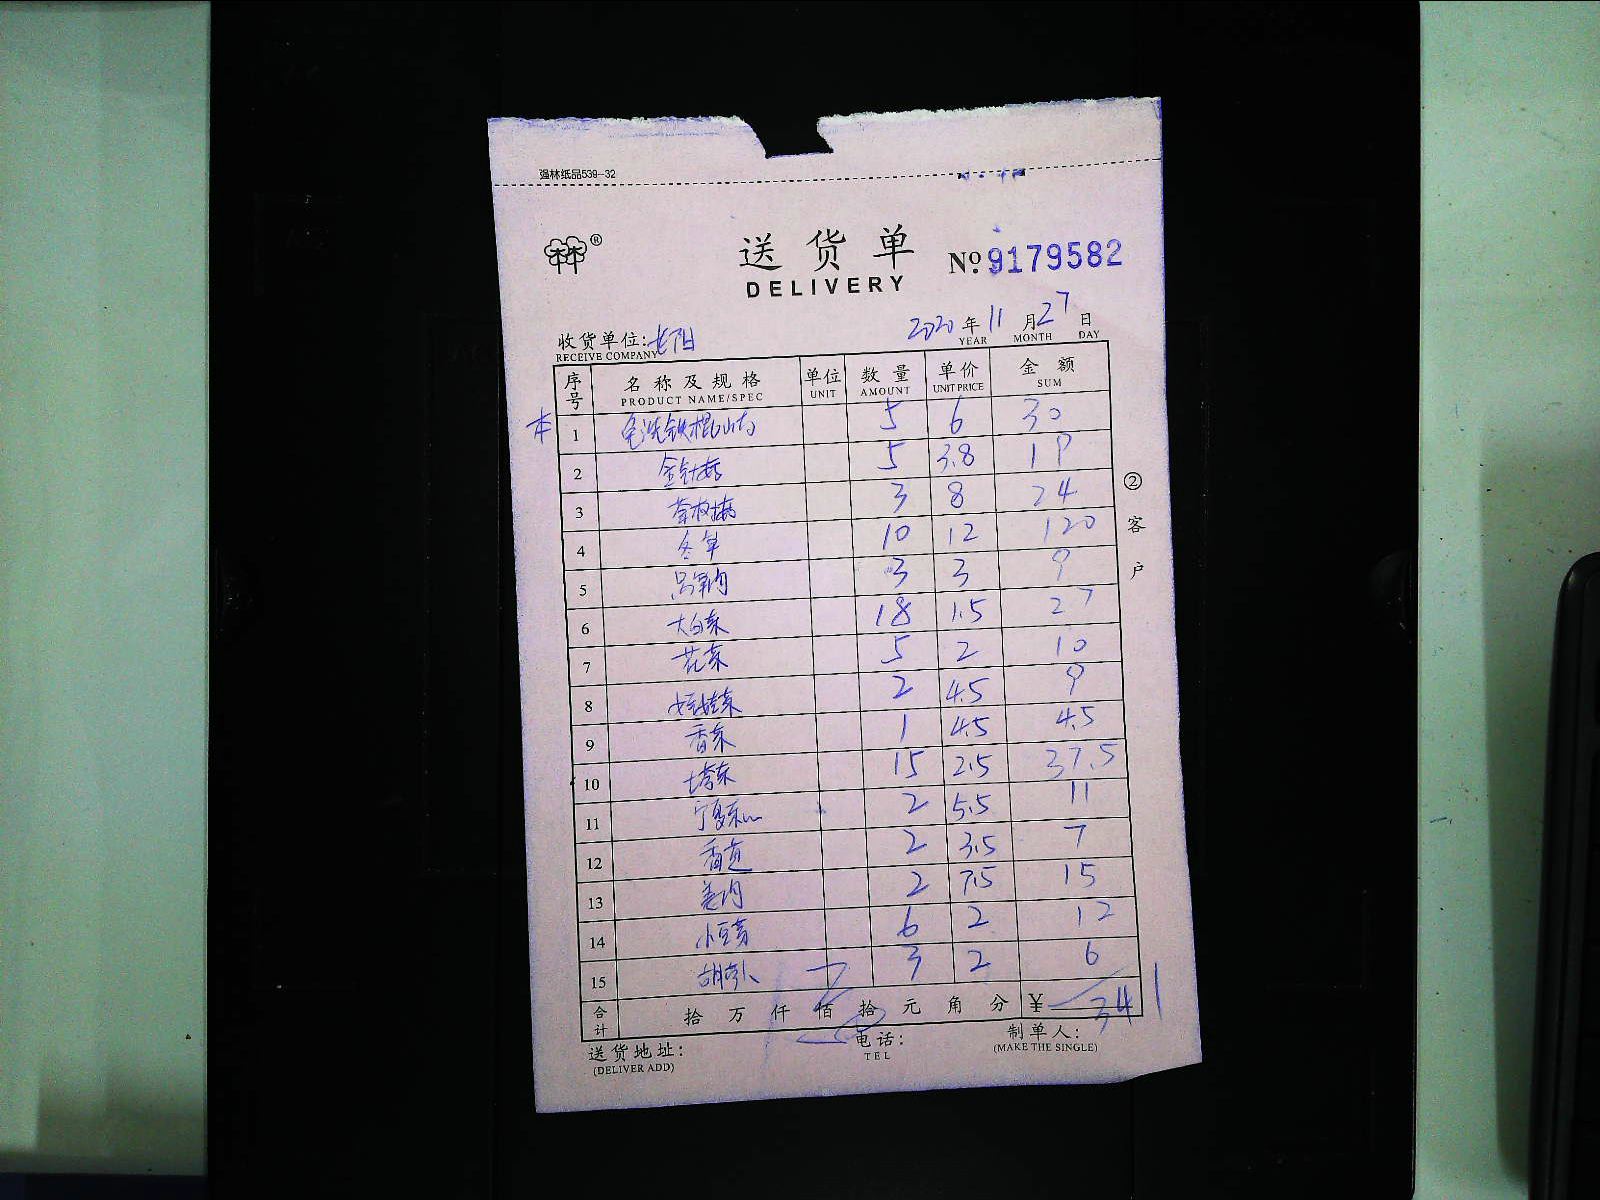 强林纸品539-32
®
送货单
No.9179582
DELIVERY
收货单位: 2020年11月27日
RECEIVE COMPANY YEAR MONTH DAY
序号 名称及规格 单位 数量 单价 金额
PRODUCT NAME/SPEC UNIT AMOUNT UNIT PRICE SUM
本 1 免洗铁棍山药 5 6 30
2 金针菇 5 3.8 19
3 3 8 24
4 冬笋 10 12 120
5 3 3 9
6 大白菜 18 1.5 27
7 花菜 5 2 10
8 娃娃菜 2 4.5 9
9 香菜 1 4.5 4.5
10 塔菜 15 2.5 37.5
11 2 5.5 11
12 2 3.5 7
13 姜肉 2 7.5 15
14 小豆芽 6 2 12
15 胡萝卜 3 2 6
合计 拾万仟佰拾元角分 ¥ 341
送货地址: 电话: 制单人:
(DELIVER ADD) TEL (MAKE THE SINGLE)
②客户